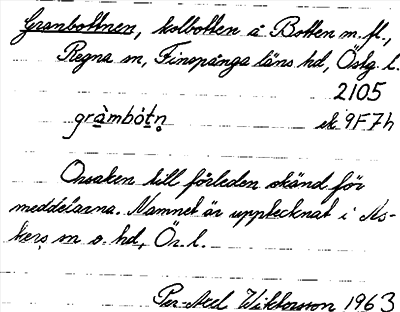 Granbottnen, kolbotten å Botten m.fl.,
Regna sn, Finspånga läns hd, Östg. l.
2105
gràmbótn̥ ek 9F7h
Orsaken till förleden okänd för
meddelarna. Namnet är upptecknat i As-
kers sn o. hd, Ör. l.
Per-Axel Wiktorsson 1963